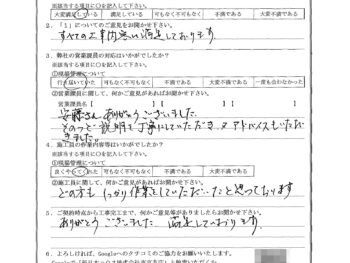 大変満足している 満足している 可もなく不可もなく 不満である 大変不満である
2.「1」についてのご意見をお聞かせ下さい。
すべての工事内容に満足しております
3．弊社の営業課員の対応はいかがでしたか？
※該当する項目に○を記して下さい。
①現場管理について
行き届いていた 満足している 可もなく不可もなく 不満である 一度も会わなかった
②営業課員に関して、何かご意見があればお聞かせ下さい。
営業課員名【 】【 】【 】
安藤さん ありがとうございました。
そのつど説明も丁寧にしていただき 又アドバイスもいただ
きました。
4．施工員の作業内容等はいかがでしたか？
※該当する項目に○を記して下さい。
①現場管理について
良くやってくれた 満足している 可もなく不可もなく 不満である 大変不満である
②施工員に関して、何かご意見があればお聞かせ下さい。
どの方も しっかり作業をしていただいたと思っております
5．ご契約時点から工事完工まで、何かご意見等が有りましたらお聞かせ下さい。
ありがとうございました 満足しております。
6．よろしければ、Googleへのクチコミのご協力をお願いいたします。